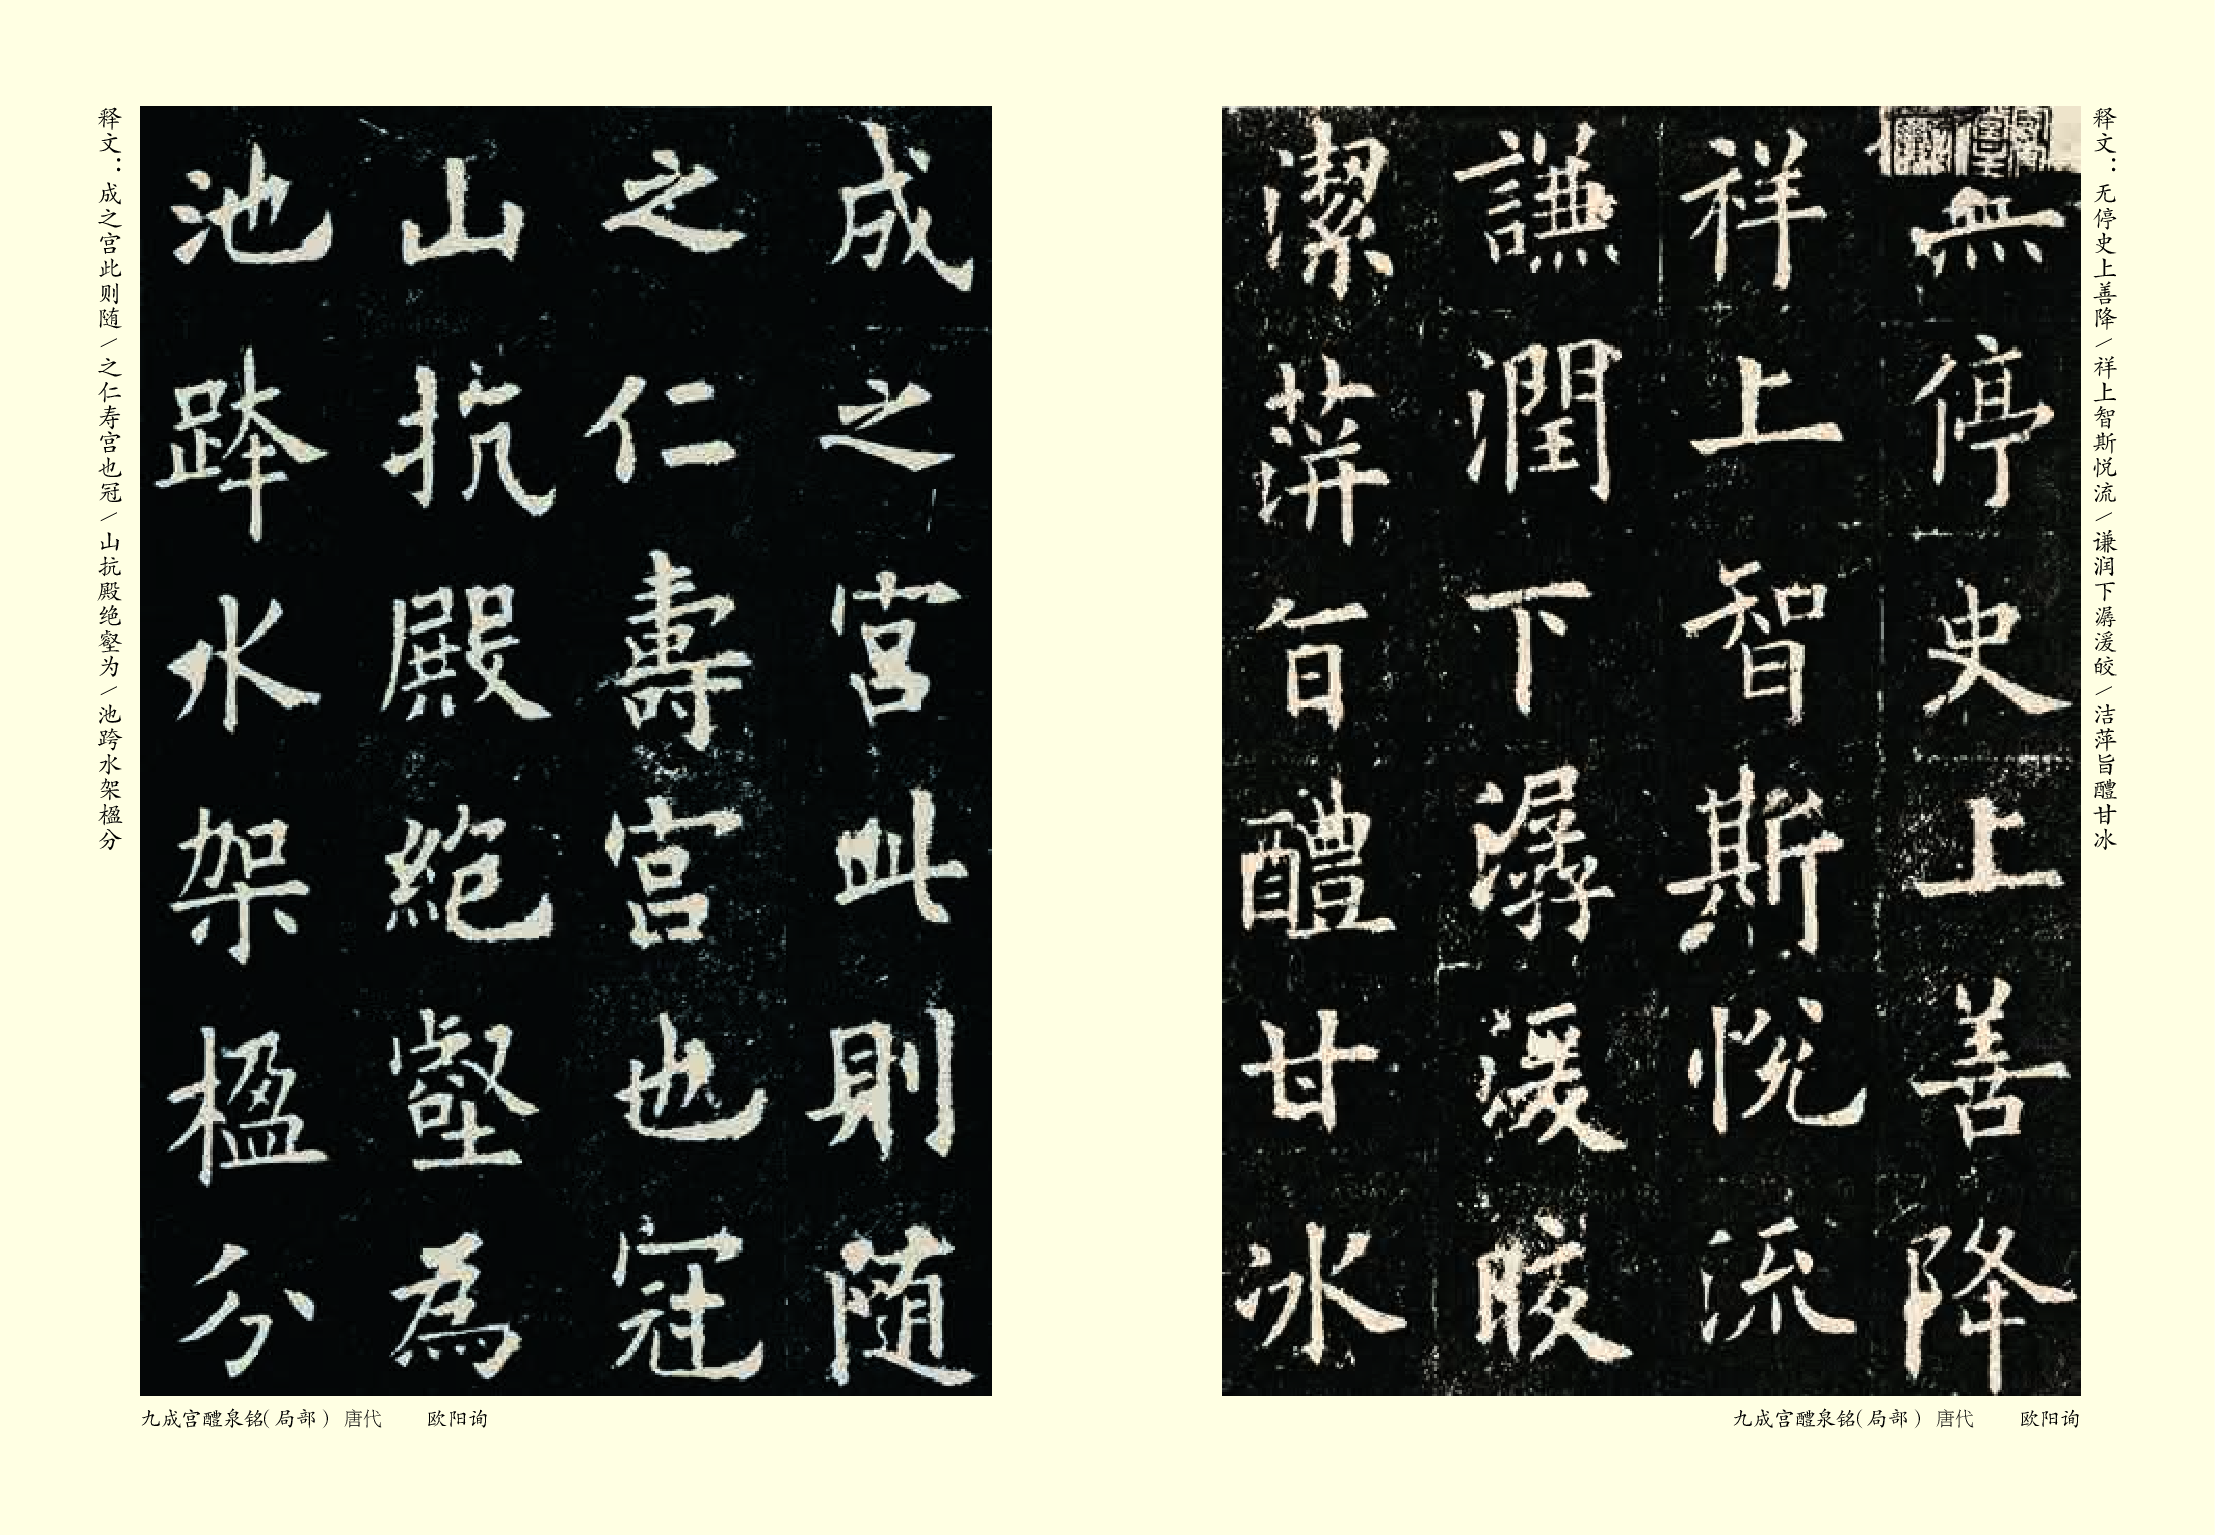 释文：成之宫此则随／之仁寿宫也冠／山抗殿绝壑为／池跨水架楹分
成之宮此則随
之仁壽宮也冠
山抗殿絶壑為
池跨水架楹分
九成宫醴泉铭（局部） 唐代 欧阳询
释文：无停史上善降／祥上智斯悦流／谦润下潺湲皎／洁萍旨醴甘冰
無停史上善降
祥上智斯悅流
謙潤下潺湲皎
潔萍旨醴甘冰
九成宫醴泉铭（局部） 唐代 欧阳询